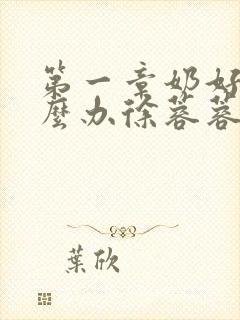 第一章奶好
麼办徐蓉蓉
葉欣